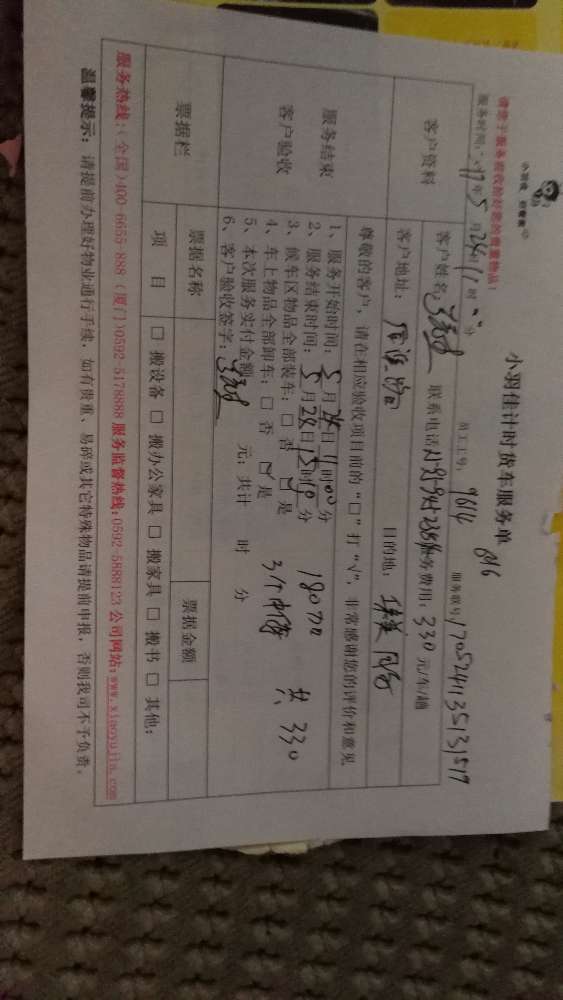 小羽佳计时货车服务单
请您于服务前收拾好您的贵重物品!
服务时间: 17年5月24日11时 分 员工工号: 9614 服务联号:
客户资料
客户姓名: 联系电话: 服务费用: 330元/车/趟
客户地址: 目的地:
服务结束
客户验收
尊敬的客户,请在相应验收项目前的“□”打“√”,非常感谢您的评价和意见
1、服务开始时间: 5月24日11时00分
2、服务结束时间: 5月24日15时10分 180元
3、候车区物品全部装车: □否 ☑是 共: 330
4、车上物品全部卸车: □否 ☑是
5、本次服务实付金额: 元; 共计 时 分
6、客户验收签字:
票据栏
票据名称
票据金额
项 目
□ 搬设备 □ 搬办公家具 □ 搬家具 □ 搬书 □ 其他:
服务热线:(全国)400-6655-888 (厦门)0592-5178888 服务监督热线:0592-5888123 公司网站:www.xiaoyujia.com
温馨提示: 请提前办理好物业通行手续,如有贵重、易碎或其它特殊物品请提前申报,否则我司不予负责。